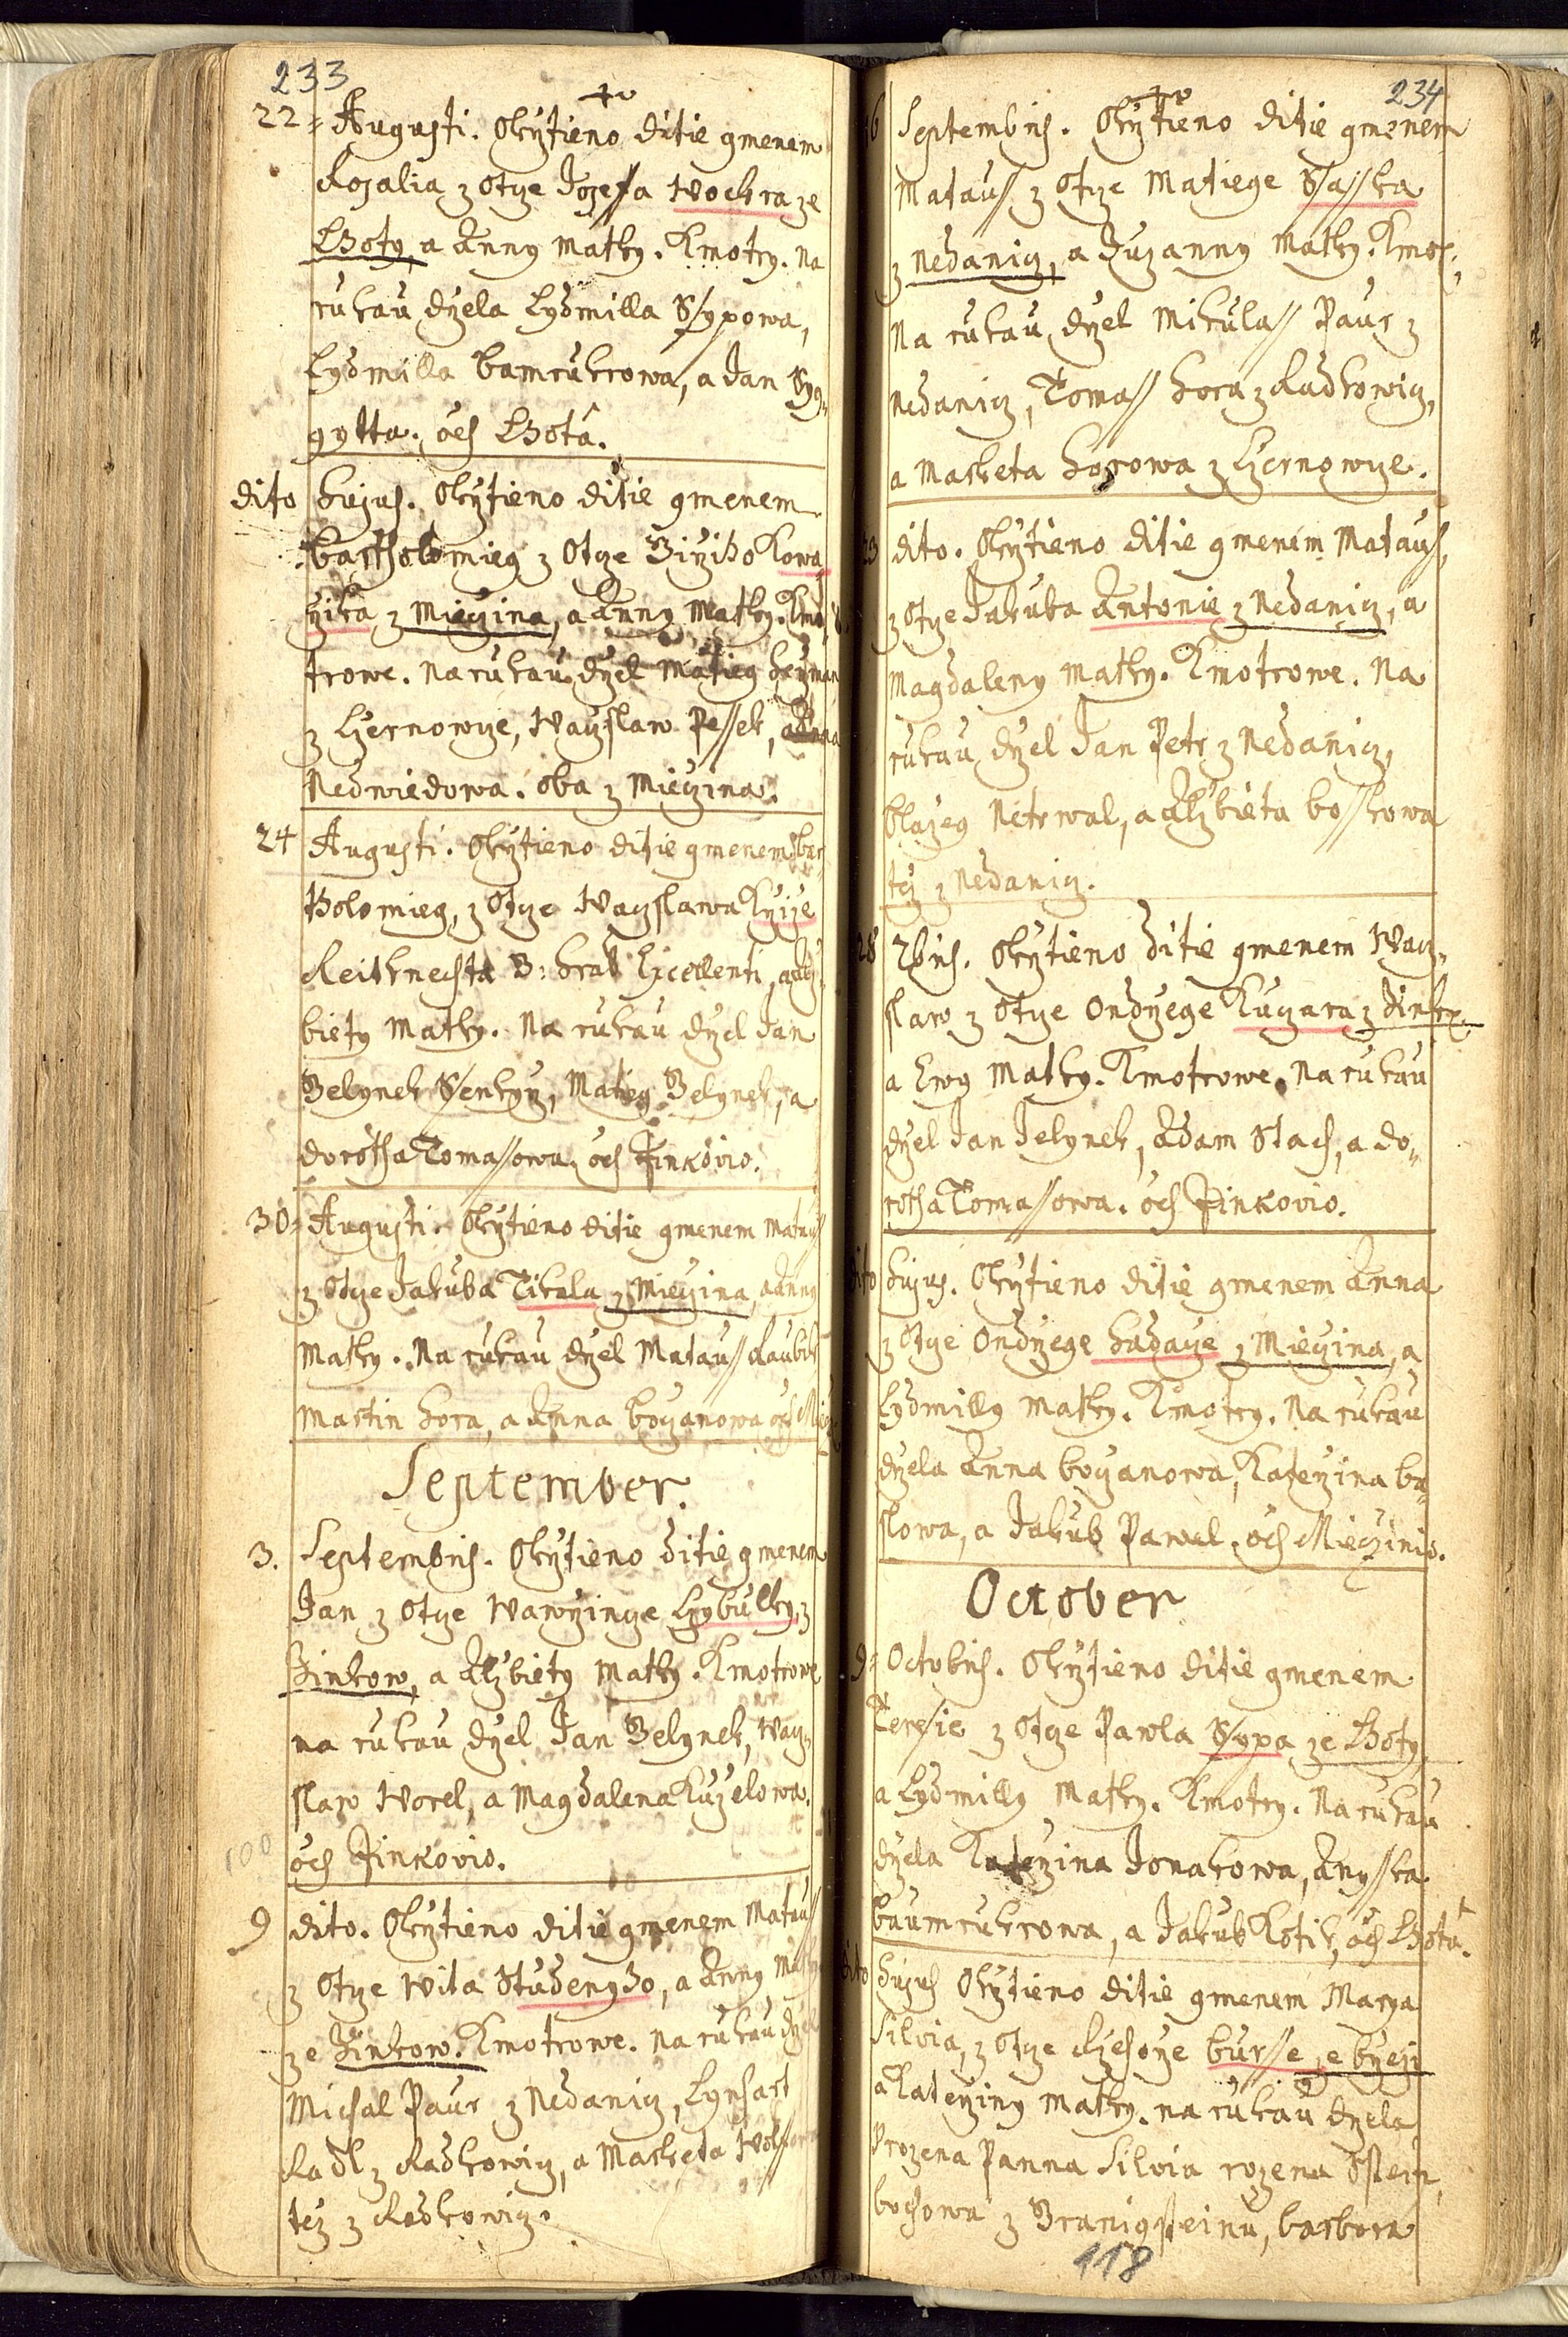 233
22 = Augusti. Okrztieno ditie gmenem
Rozalia z Otcze Jozeffa Wockra ze
Lhoty, a Anny Matky. Kmotry. Na
rukau drzela Lydmilla Ssypowa,
Lydmilla Bamrukrowa, a Jan
gytta. oes Lhota.
dito hujus. Okrztieno ditie gmenem
Bartholomieg z Otcze Girziho Kowa,
rzika z Mieczina, a Anny Matky. Kmo,
trowe. Na rukau drzel Matieg Heyman
z Czernowcze, Waczslaw Pessek, a Anna
Nedwiedowa. oba z Mieczina.
24 Augusti. Okrztieno ditie gmenem Bar
tholomieg, z Otcze Waczslawa
Reitknechta G: hrab. Excellenti, a Alz
biety Matky. Na rukau drzel Jan
Gelynek Ssenkyrz, Matieg Gelynek, a
Dorotha Tomassowa. oes Zinkovio.
30 = Augusti. Okrztieno ditie gmenem Matauss
z Otcze Jakuba Tikala z Mieczina, a Anny
Matky. Na rukau drzel Matauss Raubik
Martin Hora, a Anna Boyanowa oes
September.
3. Septembris. Okrztieno ditie gmenem
Jan z Otcze Wawrzincze Czybulky, z
Zinkow, a Alzbiety Matky. Kmotrowe
na rukau drzel Jan Gelynek, Wacz,
slaw Worel, a Magdalena Kuzelowa.
oes Zinkovio.
100
9 dito. Okrztieno ditie gmenem Matauss
z Otcze Wita Studenyho, a Anny Matky
ze Zinkow. Kmotrowe. Na rukau drzel
Michal Paur z Nedanicz, Lynhart
Radl z Radkowicz, a Marketa
tez z Radkowicz.
234
6 Septembris. Okrztieno ditie gmenem
Matauss z Otcze Matiege Ssasska
z Nedanicz, a Zuzanny Matky. Kmot:
Na rukau drzel Mikulass Paur z
Nedanicz, Tomass Hora z Radkowicz,
a Marketa Horowa z Czernowcze.
23 dito. Okrztieno ditie gmenem Matauss,
z Otcze Jakuba Antonie z Nedanicz, a
Magdaleny Matky. Kmotrowe. Na
rukau drzel Jan Petr z Nedanicz,
Blazeg Netrwal, a Alzbieta Bosskowa
tez z Nedanicz.
28 7bris. Okrztieno ditie gmenem Wacz,
slaw z Otcze Ondrzege Kuczara z Zinkow
a Ewy Matky. Kmotrowe. Na rukau
drzel Jan Jelynek, Adam Stach, a Do,
rotha Tomassowa. oes Zinkovio.
dito hujus. Okrztieno ditie gmenem Anna
z Otcze Ondrzege Hadacze z Mieczina, a
Lydmilly Matky. Kmotry. Na rukau
drzela Anna Boyanowa, Katerzina Ba,
slowa, a Jakub Pawel. oes Mieczinio.
October
9 = Octobris. Okrztieno ditie gmenem
Teressie z Otcze Pawla Ssypa ze Lhoty
a Lydmilly Matky. Kmotry. Na rukau
drzela Katerzina Jonakowa, Anysska
Baumrukrowa, a Jakub Kotik, oes Lhota.
dito hujus Okrztieno ditie gmenem Marya
Silvia, z Otcze Rzehorze Bursse,
a Katerziny Matky. na rukau drzela
Urozena Panna Silvia rozena Sstein,
bochowa z Granigsteinu, Barbora
118